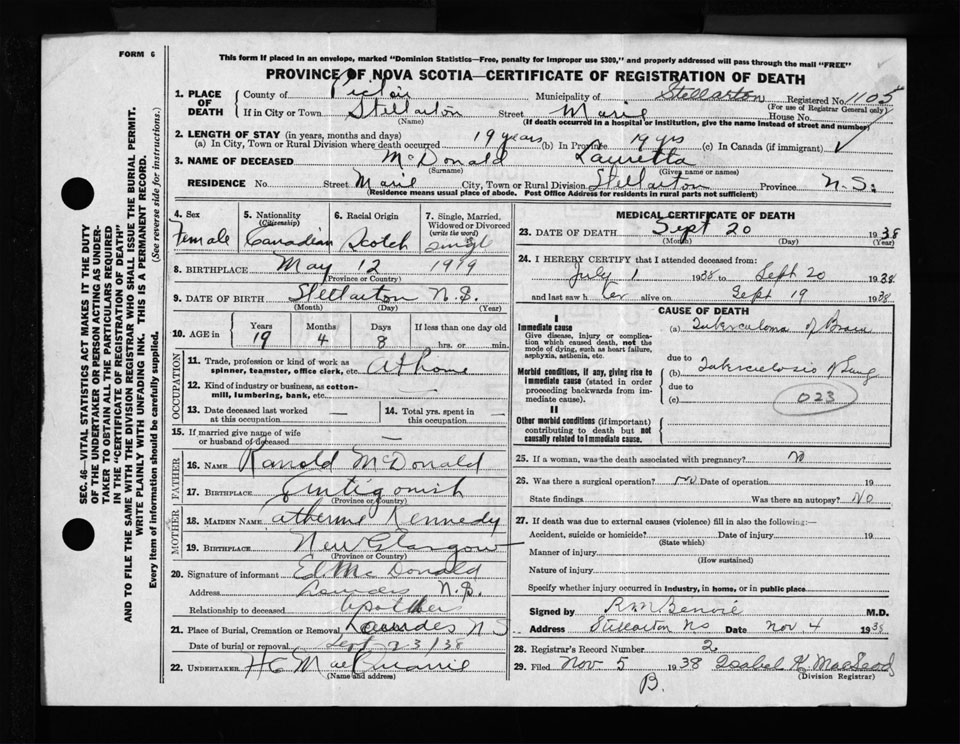 FORM 6
This form if placed in an envelope, marked "Dominion Statistics—Free, penalty for improper use $300," and properly addressed will pass through the mail "FREE"
PROVINCE OF NOVA SCOTIA—CERTIFICATE OF REGISTRATION OF DEATH
1. PLACE OF DEATH
County of Pictou Municipality of Stellarton Registered No. 1105
(For use of Registrar General only)
If in City or Town Stellarton Street Marie House No.
(Name) (If death occurred in a hospital or institution, give the name instead of street and number)
2. LENGTH OF STAY (in years, months and days)
(a) In City, Town or Rural Division where death occurred 19 years (b) In Province 19 yrs (c) In Canada (if immigrant)
3. NAME OF DECEASED McDonald Lauretta
(Surname) (Given name or names)
RESIDENCE No. Street Marie City, Town or Rural Division Stellarton Province N.S.
(Residence means usual place of abode. Post Office Address for residents in rural parts not sufficient)
4. Sex Female
5. Nationality (Citizenship) Canadian
6. Racial Origin Scotch
7. Single, Married, Widowed or Divorced (write the word) Singl
8. BIRTHPLACE May 12 1919
(Province or Country)
9. DATE OF BIRTH Stellarton N.S.
(Month) (Day) (Year)
10. AGE in Years 19 Months 4 Days 8 If less than one day old hrs. or min.
OCCUPATION
11. Trade, profession or kind of work as spinner, teamster, office clerk, etc. At home
12. Kind of industry or business, as cotton-mill, lumbering, bank, etc. —
13. Date deceased last worked at this occupation —
14. Total yrs. spent in this occupation —
15. If married give name of wife or husband of deceased —
FATHER
16. NAME Ranold McDonald
17. BIRTHPLACE Antigonish
(Province or Country)
MOTHER
18. MAIDEN NAME Catherine Kennedy
19. BIRTHPLACE New Glasgow
(Province or Country)
20. Signature of informant Ed McDonald
Address Lourdes N.S.
Relationship to deceased
21. Place of Burial, Cremation or Removal Lourdes N S
Date of burial or removal Sept 23/38
22. UNDERTAKER H C MacQuarrie
(Name and address)
MEDICAL CERTIFICATE OF DEATH
23. DATE OF DEATH Sept 20 1938
(Month) (Day) (Year)
24. I HEREBY CERTIFY that I attended deceased from:
July 1 1938 to Sept 20 1938
and last saw h er alive on Sept 19 1938
CAUSE OF DEATH
I
Immediate cause
Give disease, injury or complication which caused death, not the mode of dying, such as heart failure, asphyxia, asthenia, etc.
(a) Tuberculoma of Brain
due to
Morbid conditions, if any, giving rise to immediate cause (stated in order proceeding backwards from immediate cause).
(b) Tuberculosis of Lung
due to
(c) 023
II
Other morbid conditions (if important) contributing to death but not causally related to immediate cause.
25. If a woman, was the death associated with pregnancy? No
26. Was there a surgical operation? no Date of operation 19
State findings Was there an autopsy? No
27. If death was due to external causes (violence) fill in also the following:—
Accident, suicide or homicide? Date of injury 19
(State which)
Manner of injury
(How sustained)
Nature of injury
Specify whether injury occurred in industry, in home, or in public place
Signed by R M Benvie M.D.
Address Stellarton NS Date Nov 4 1938
28. Registrar's Record Number 2
29. Filed Nov 5 1938 Isabel K MacLeod
(Division Registrar)
B.
SEC. 46—VITAL STATISTICS ACT MAKES IT THE DUTY
OF THE UNDERTAKER OR PERSON ACTING AS UNDER-
TAKER TO OBTAIN ALL THE PARTICULARS REQUIRED
IN THE "CERTIFICATE OF REGISTRATION OF DEATH"
AND TO FILE THE SAME WITH THE DIVISION REGISTRAR WHO SHALL ISSUE THE BURIAL PERMIT.
WRITE PLAINLY WITH UNFADING INK. THIS IS A PERMANENT RECORD.
Every item of information should be carefully supplied. (See reverse side for instructions.)